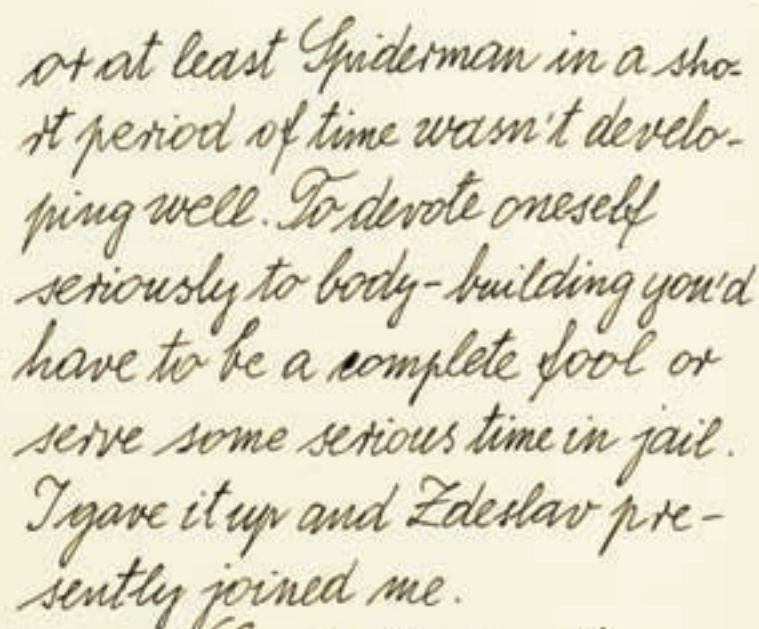 or at least Spiderman in a sho-
rt period of time wasn't develo-
ping well. To devote oneself
seriously to body-building you'd
have to be a complete fool or
serve some serious time in jail.
I gave it up and Zdeslav pre-
sently joined me.